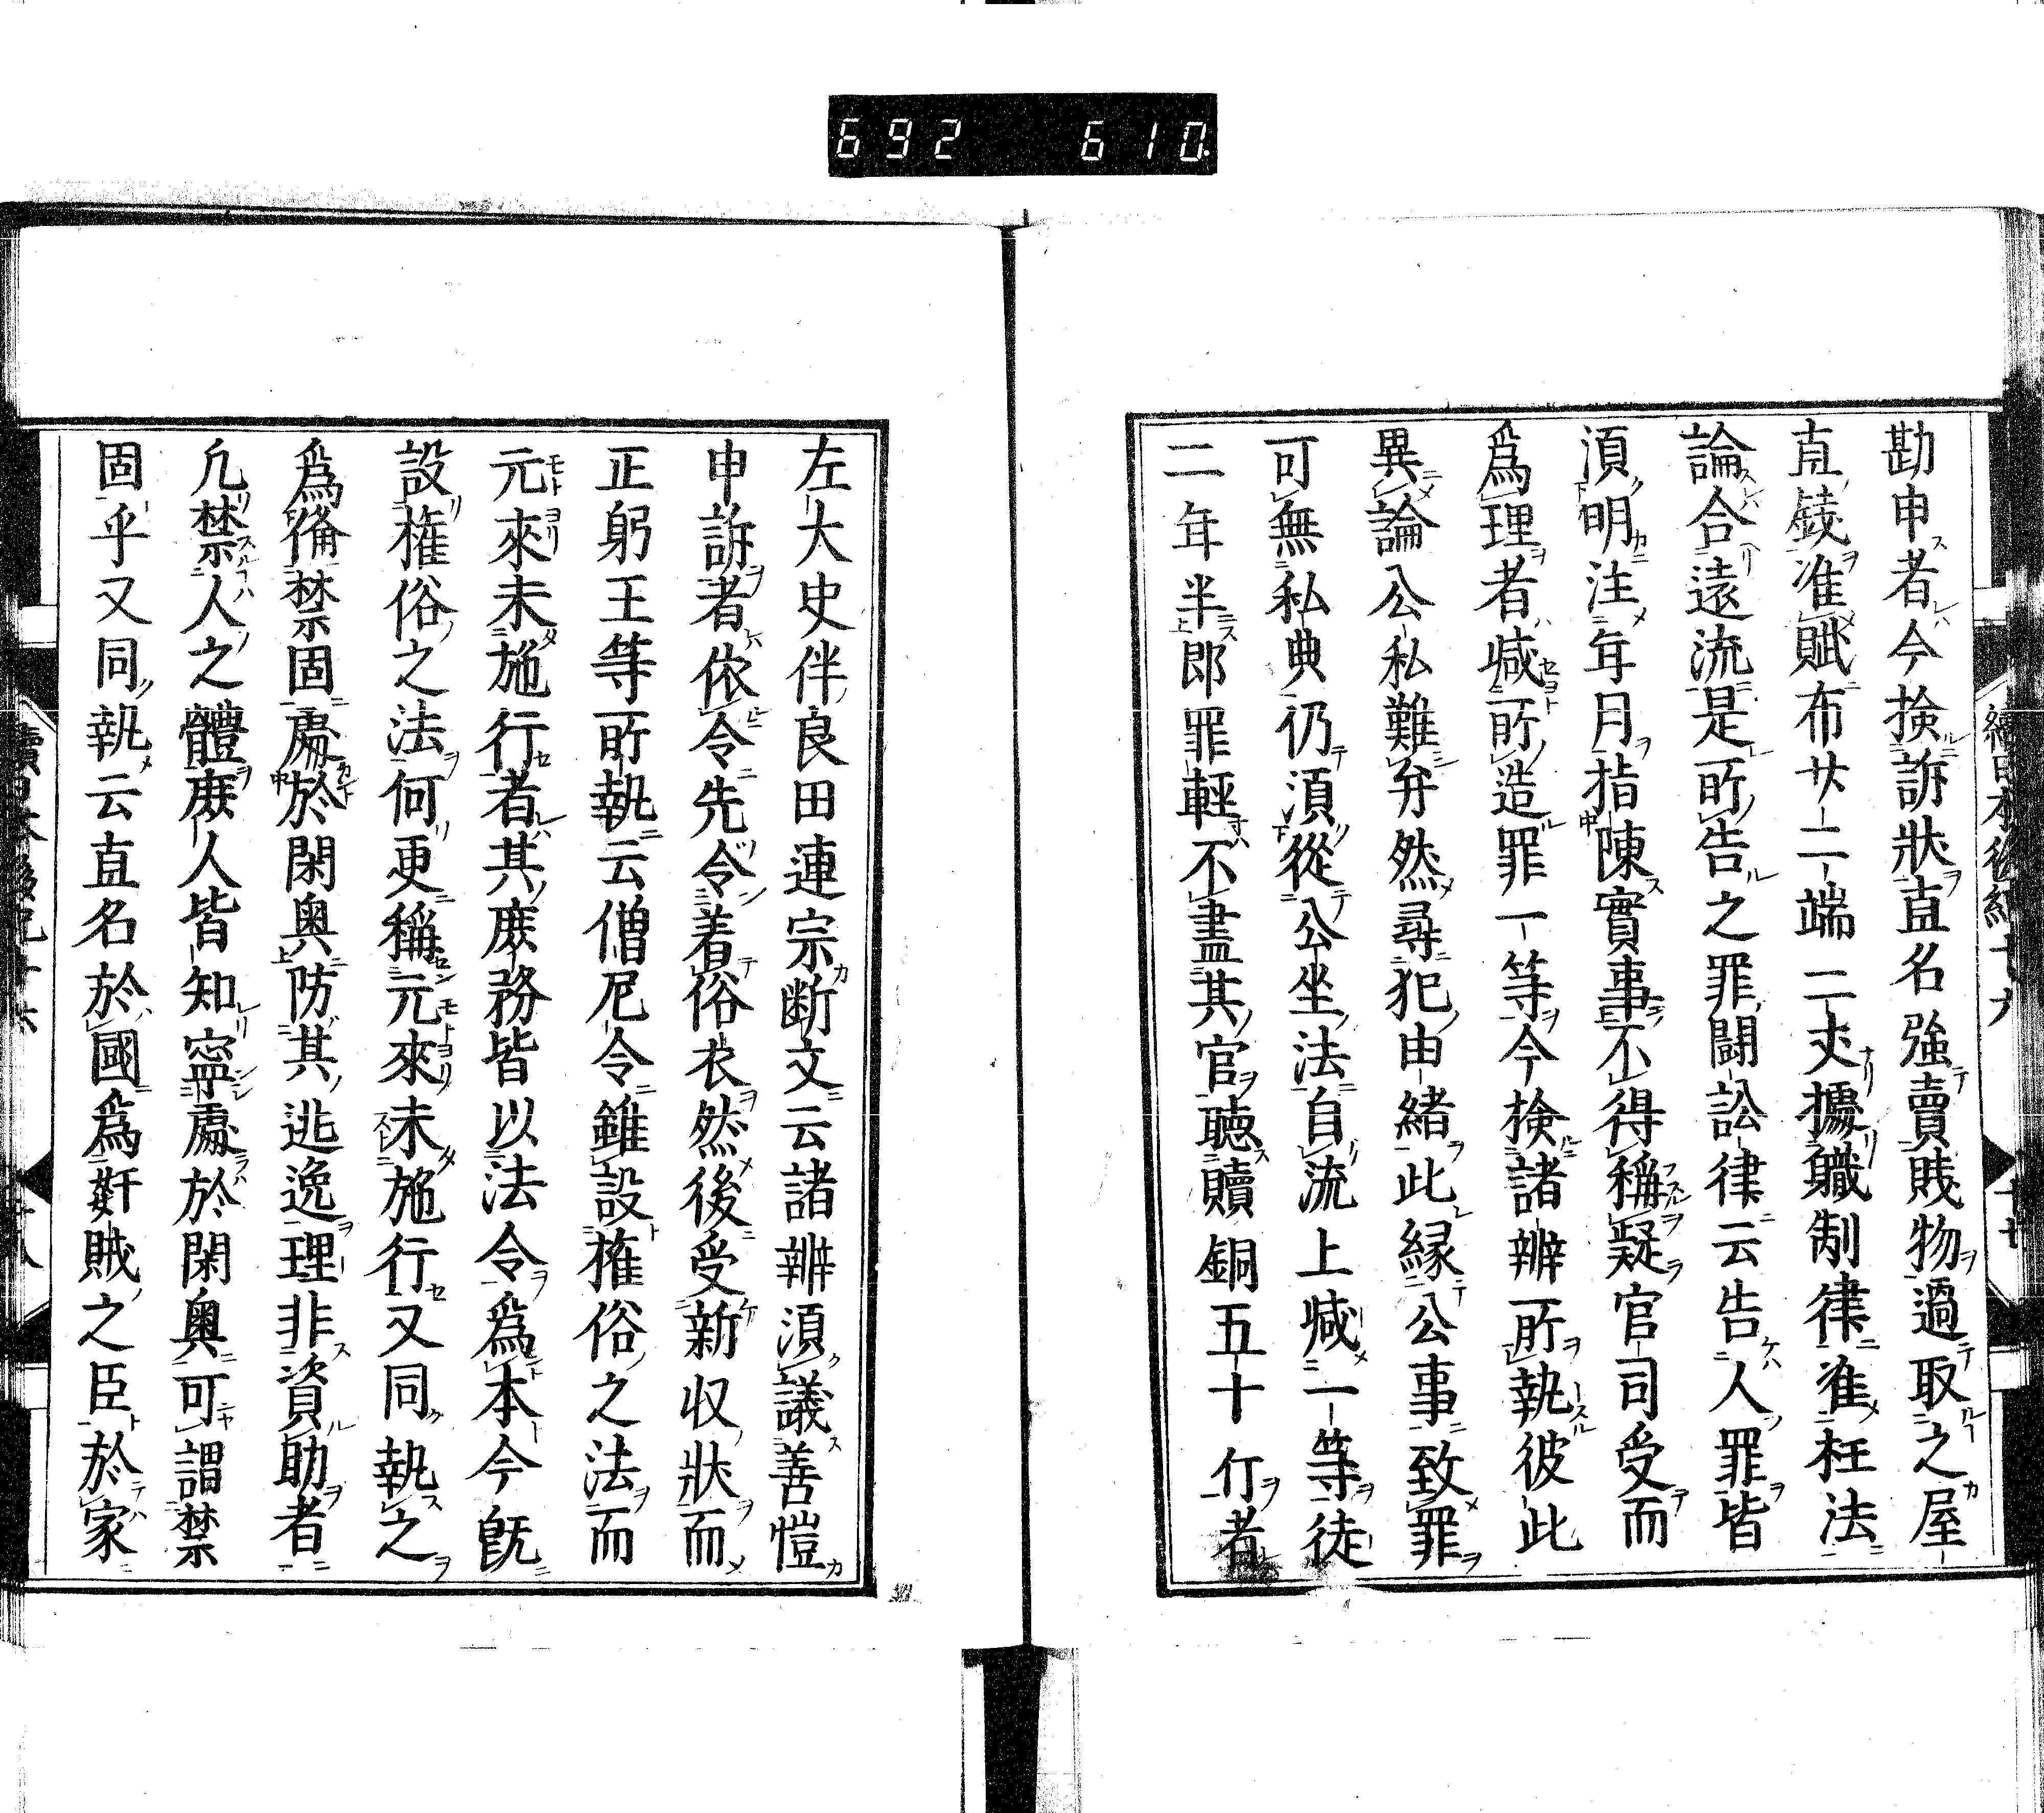 692 610
勘申者今撿訴狀直名強賣賎物過取之屋
直錢准賦布廿二端二丈據職制律准枉法
論合遠流是所告之罪鬪訟律云告人罪皆
湏明注年月指陳實事不得稱疑官司受而
爲理者减所造罪一等今撿諸辨所執彼此
異論公私難弁然尋犯由緒此縁公事致罪
可無私典仍湏從公坐法自流上减一等徒
二年半郎罪輕不盡其官聴贖銅五十斤者
左大史伴良田連宗断文云諸辨湏議善愷
申訴者依令先令着俗衣然後受新収狀而
正躬王等所執云僧尼令雖設權俗之法而
元來未施行者其庶務皆以法令爲本今既
設權俗之法何更稱元來未施行又同執之
爲脩禁固處於閑奥防其逃逸理非資助者
凢禁人之體庶人皆知寧處於閑奥可謂禁
固乎又同執云直名於國爲奸賊之臣於家